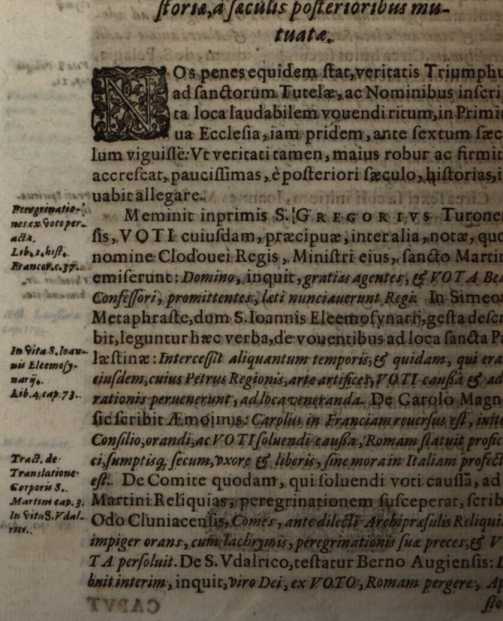 ſtoria, à ſæculis poſterioribus mu-
tuatæ.
NOs penes equidem ſtat, veritatis Triumphu
ad ſanctorum Tutelæ, ac Nominibus inſcri
ta loca laudabilem vouendi ritum, in Primi
ua Eccleſia, iam pridem, ante ſextum ſæc
lum viguiſſe: Vt veritati tamen, maius robur ac firmit
accreſcat, pauciſſimas, è poſteriori ſæculo, hiſtorias, i
uabit allegare.
Peregrinatio-
nes ex Voto per-
actæ.
Lib. 2. hiſt.
Francor. c. 37.
Meminit inprimis S. GREGORIVS Turone
ſis, VOTI cuiuſdam, præcipuæ, inter alia, notæ, quo
nomine Clodouei Regis, Miniſtri eius, ſancto Martin
emiſerunt: Domino, inquit, gratias agentes, & VOTA Bea
Confeſſori, promittentes, læti nunciauerunt Regi. In Simeo
Metaphraſte, dum S. Ioannis Eleemoſynarij, geſta deſcr
bit, leguntur hæc verba, de vouentibus ad loca ſancta Pa
læſtinæ: Interceſſit aliquantum temporis, & quidam, qui era
eiuſdem, cuius Petrus Regionis, arte artifices, VOTI cauſſa & ad
rationis peruenerunt, ad loca veneranda. De Carolo Magn
In vita S. Ioan-
nis Eleemoſy-
narij.
Lib. 4. cap. 73.
ſic ſcribit Æmoinus: Carolus in Franciam reuerſus eſt, inito
Conſilio, orandi, ac VOTI ſoluendi cauſſa, Romam ſtatuit profic
ci, ſumptiſq; ſecum, vxore & liberis, ſine mora in Italiam profect
eſt. De Comite quodam, qui ſoluendi voti cauſſa, ad
Martini Reliquias, peregrinationem ſuſceperat, ſcrib
Odo Cluniacenſis, Comes, ante dilecti Archipræſulis Reliqui
impiger orans, cum lachrymis, peregrinationis ſuæ preces, & V
TA perſoluit. De S. Vdalrico, teſtatur Berno Augienſis: L
buit interim, inquit, viro Dei, ex VOTO, Romam pergere, Ap
Tract. de
Translatione
Corporis S.
Martini cap. 3.
In vita S. Vdal-
rici.